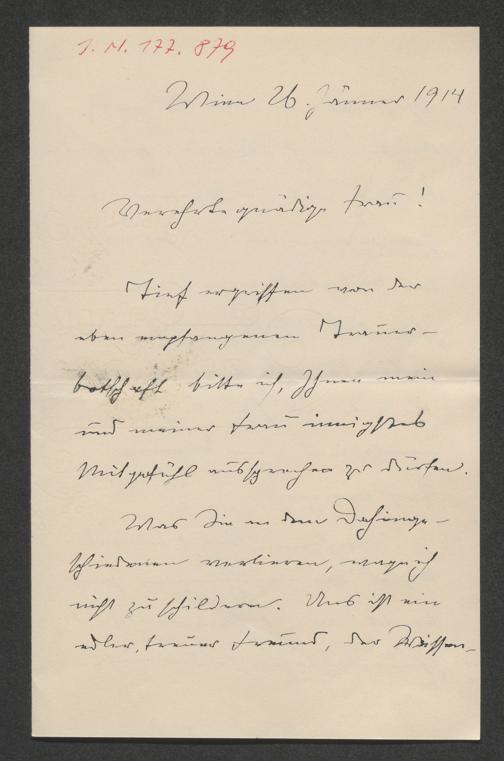 J. N. 177.879
Wien 26. Jänner 1914
Verehrte gnädige Frau!
Tief ergriffen von der
eben empfangenen Trauer-
botschaft bitte ich, Ihnen mein
und meiner Frau innigstes
Mitgefühl aussprechen zu dürfen.
Was Sie an dem Dahinge-
schiedenen verlieren, wage ich
nicht zu schildern. Uns ist ein
edler, treuer Freund, der Wissen-